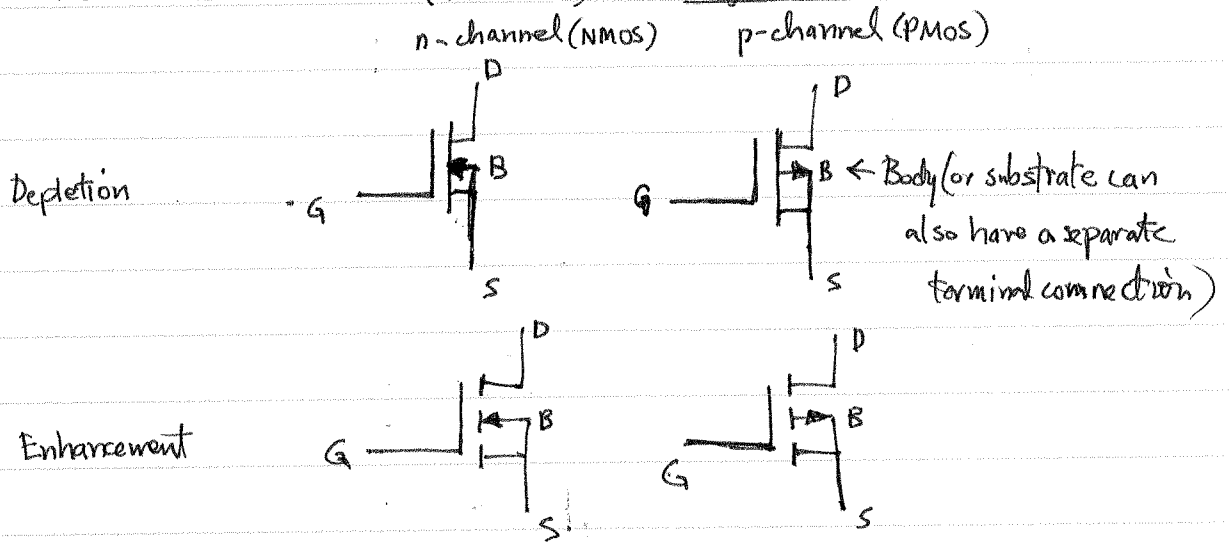 n-channel (NMOS) p-channel (PMOS)
D D
Depletion G B G B ← Body (or substrate can
also have a separate
S S terminal connection)
D D
Enhancement G B G B
S S